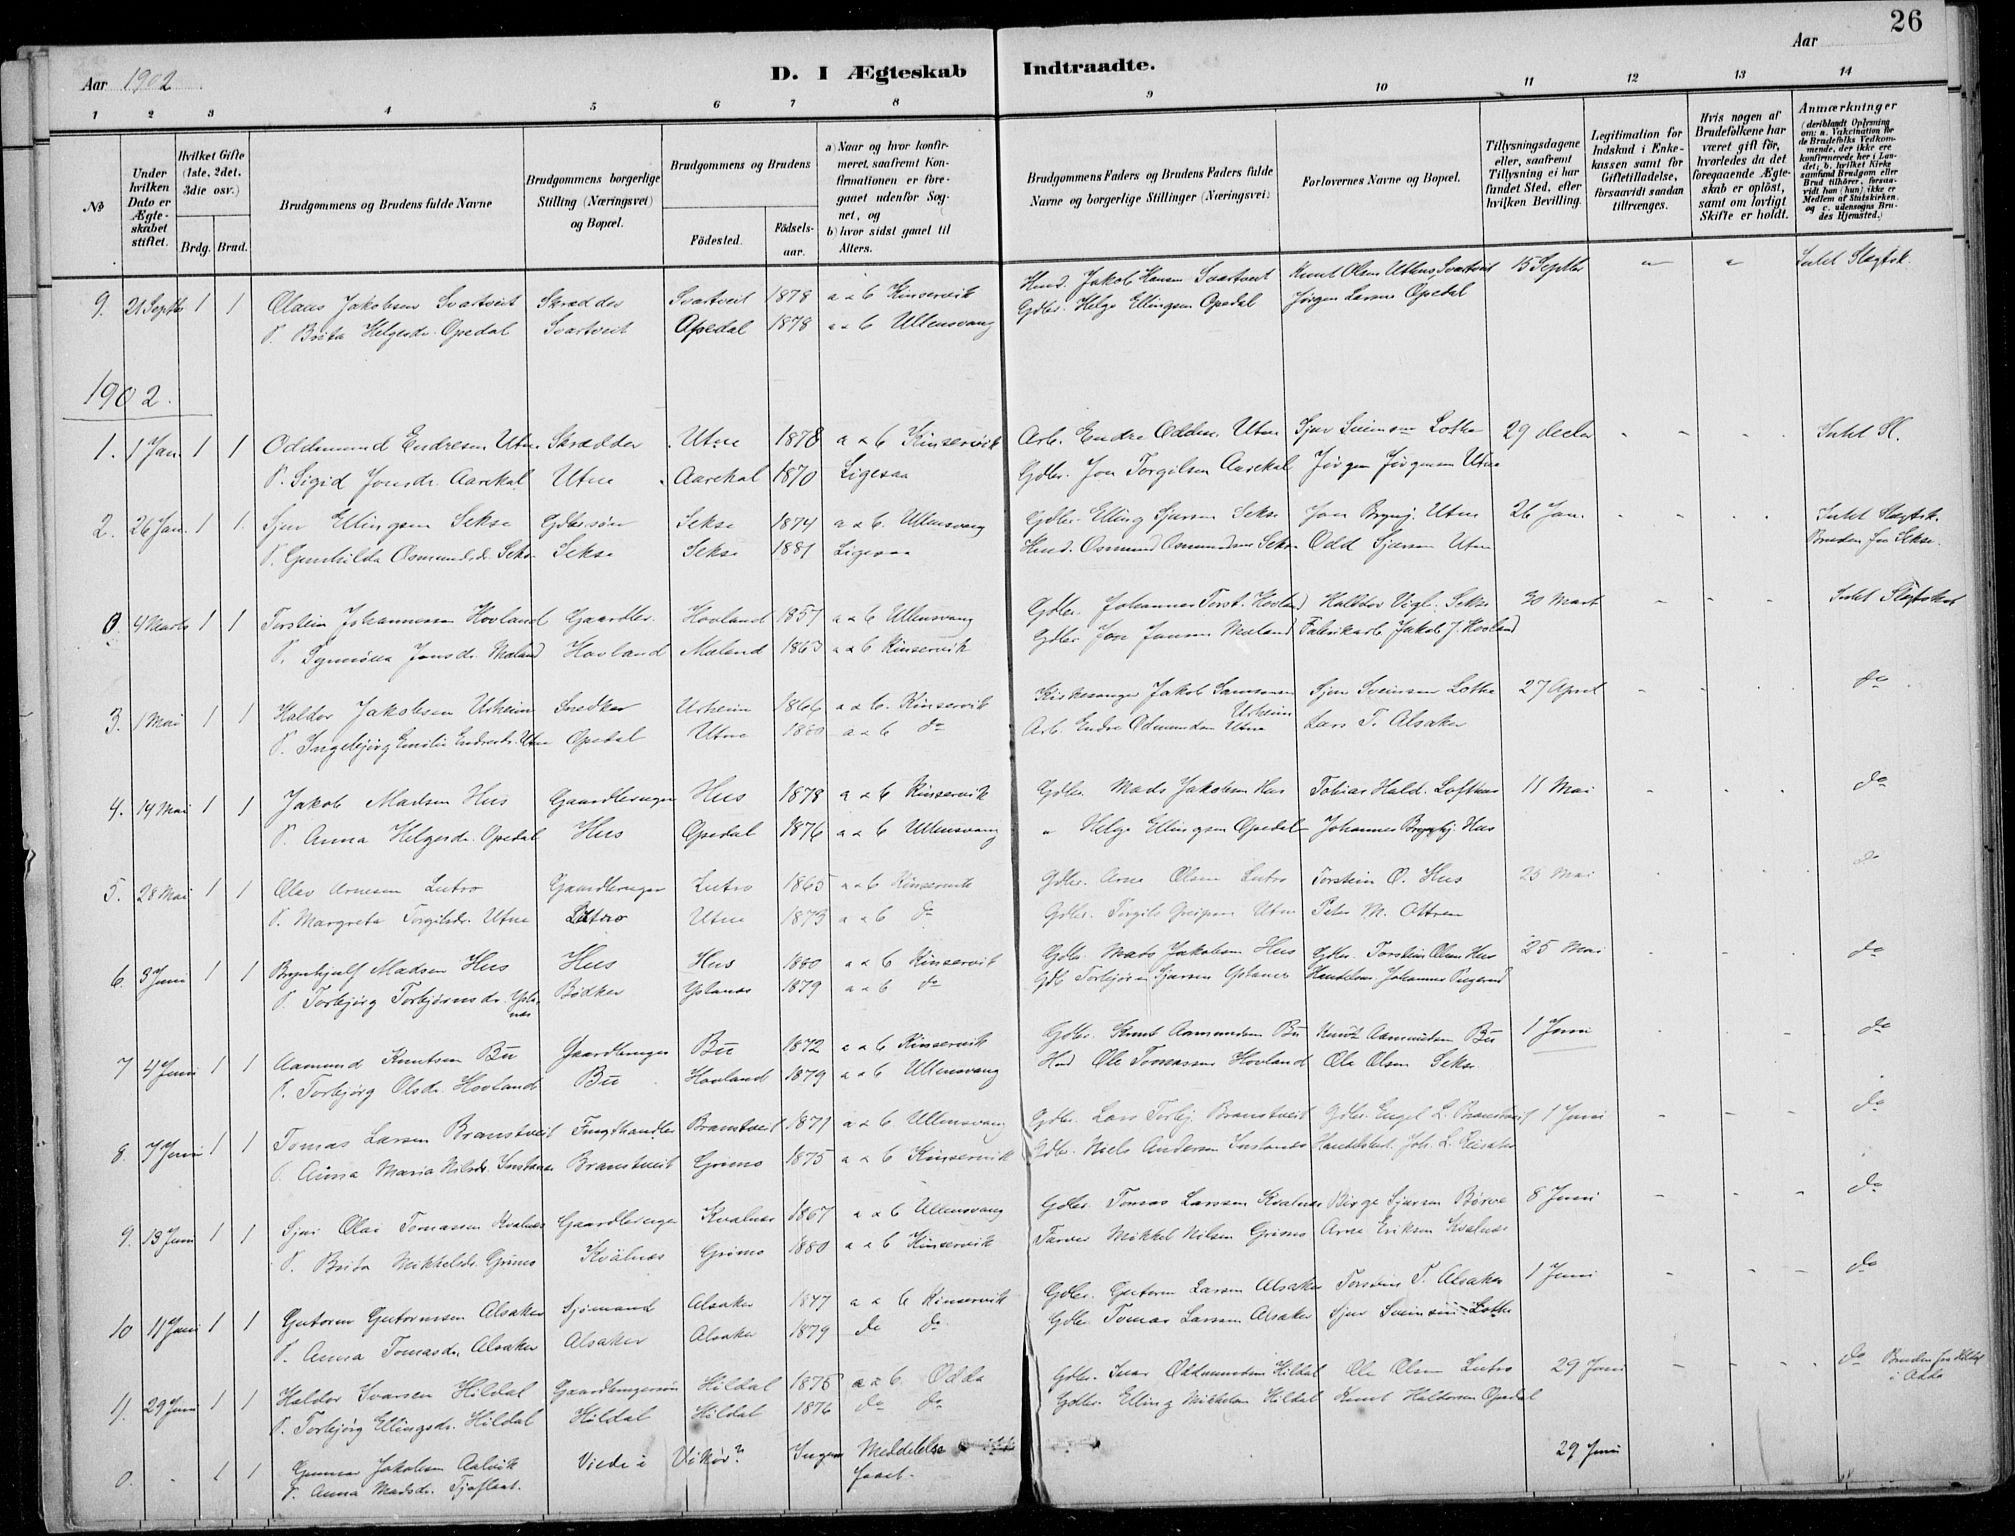 26
Aar 1902
D. I Ægteskab Indtraadte.
Aar
1 2 3 4 5 6 7 8 9 10 11 12 13 14
No
Under hvilken Dato er Ægteskabet stiftet.
Hvilket Gifte (1ste, 2det, 3die osv.)
Brdg. Brud.
Brudgommens og Brudens fulde Navne
Brudgommens borgerlige Stilling (Næringsvei) og Bopæl.
Brudgommens og Brudens
Födested. Födselsaar.
a) Naar og hvor konfirmeret, saafremt Konfirmationen er foregaaet udenfor Sognet, og
b) hvor sidst gaaet til Alters.
Brudgommens Faders og Brudens Faders fulde Navne og borgerlige Stillinger (Næringsvei)
Forlovernes Navne og Bopæl.
Tillysningsdagene eller, saafremt Tillysning ei har fundet Sted, efter hvilken Bevilling.
Legitimation for Indskud i Enkekassen samt for Giftetilladelse, forsaavidt saadan tiltrænges.
Hvis nogen af Brudefolkene har været gift för, hvorledes da det foregaaende Ægteskab er oplöst, samt om lovligt Skifte er holdt.
Anmærkninger (deriblandt Oplysning om: a. Vakcination for de Brudefolks Vedkommende, der ikke ere konfirmerede her i Landet; b. hvilket Kirkesamfund Brudgom eller Brud tilhörer, forsaavidt han (hun) ikke er Medlem af Statskirken, og c. udensogns Brudes Hjemsted.)
9. 21 Septbr 1 1 Olaus Jakobsen Svartveit Skrædder Svartveit 1878 a & b Kinservik Husd. Jakob Hansen Svartveit Knut Olsen Utne Svartveit 15 Septbr " " Intet Slægtsk.
P. Brita Helgesdr. Opedal Svartveit Opedal 1878 a & b Ullensvang Gdbr. Helge Ellingsen Opedal Jørgen Larsen Opedal
1902.
1. 1 Jan. 1 1 Oddmund Endresen Utne Skrædder Utne 1878 a & b Kinservik Arb. Endre Oddm. Utne Sjur Sveinsen Lothe 29 decbr - - - - Intet Sl.
P. Sigrid Jonsdr. Aarekol Utne Aarekol 1870 Ligesaa Gdbr. Jon Torgilsen Aarekol Jørgen Jørgensen Utne
2. 26 Jan. 1 1. Sjur Ellingsen Sekse Gdbrsøn Sekse 1874 a & b. Ullensvang Gdbr. Elling Sjursen Sekse Jon Brynj. Utne 26 Jan. - - - Intet Slægtsk.
P. Gunhilda Osmundsdr. Sekse Sekse Sekse 1881 Ligesaa Husd. Osmund Osmundsen Sekse Odd Sjursen Utne Bruden fra Sekse.
0. 4 Marts 1 1 Torstein Johannessen Hovland Gaardbr. Hovland 1857 a & b Ullensvang Gdbr. Johannes Torst. Hovland Haldor Vigl. Sekse 30 Mart - - - Intet Slægtskab
P. Synnöva Jonsdr. Mæland Hovland Mæland 1863 a & b Kinservik Gdbr. Jon Jonsen Mæland Fabrikarb. Jakob J. Hovland
3. 1 Mai 1 1 Haldor Jakobsen Urheim Snedker Urheim 1866 a & b. Kinservik Kirkesanger Jakob Samsonsen Urheim Sjur Sveinsen Lothe 27 April - - . do
P. Ingebjørg Emilie Endresdr. Utne Opedal Utne 1880 a & b do Arb. Endre Odmundsen Utne Lars T. Alsaker
4. 19 Mai 1 1 Jakob Madsen Hus Gaardbruger Hus 1878 a & b Kinservik Gdbr. Mads Jakobsen Hus Tobias Hald. Lofthus 11 Mai - . . do
P. Anna Helgesdr. Opedal Hus Opedal 1876 a & b Ullensvang " Helge Ellingsen Opedal Johannes Brynhj. Hus
5. 28 Mai 1 1 Olav Arnesen Lutro Gaardbruger Lutro 1865 a & b Kinservik Gdbr. Arne Olsen Lutro Torstein O. Hus 25 Mai do
P. Margreta Torgilsdr. Utne Lutro Utne 1873 a & b do Gdbr. Torgils Greipsen Utne Peter M.
6. 3 Juni 1 1 Brynhjulf Madsen Hus Hus Hus 1880 a & b Kinservik Gdbr. Mads Jakobsen Hus Gdbr. Torstein Olsen Hus 25 Mai do
P. Torbjørg Torbjørnsdr. Ystanæs Bødker Ystanæs 1879 a & b do Gdb Torbjørn Sjursen Ystanæs Handelsm. Johannes
7 4 Juni 1 1 Aamund Knutsen Bu Gaardbruger Bu 1872 a & b Kinservik Gdbr. Knut Aamundsen Bu Knut Aamundsen Bu 1 Juni - - do
P. Torbjørg Olsdr. Hovland Bu Hovland 1879 a & b Ullensvang Husd Ole Tomassen Hovland Ole Olsen Sekse
8. 7 Juni 1 1 Tomas Larsen Branstveit Frugthandler Branstveit 1871 a & b Ullensvang Gdbr. Lars Torbj. Branstveit Gdbr. Engel L. Branstveit 1 Juni - - - do
P. Anna Maria Nilsdr. Instanes Branstveit Grimo 1875 a & b Kinservik Gdbr. Niels Andersen Instanes Handelsbet. Joh. L.
9. 13 Juni 1 1 Sjur Olai Tomassen Kvalnæs Gaardbruger Kvalnæs 1867 a & b Ullensvang Gdbr. Tomas Larsen Kvalnæs Børge Sjursen Børve 8 Juni - - - do
P. Brita Mikkelsdr. Grimo Kvalnæs Grimo 1880 a & b Kinservik Farver Mikkel Nilsen Grimo Arne Eriksen Kvalnæs
10 11 Juni 1 1 Gutorm Gutormssen Alsaker Sjømand Alsaker 1877 a & b Kinservik Gdbr. Gutorm Larsen Alsaker Torstein T. Alsaker 1 Juni - - - do
P. Anna Tomasdr. Alsaker Alsaker Alsaker 1879 do do Gdbr. Tomas Larsen Alsaker Sjur Sveinsen Lothe
11. 29 Juni 1 1 Haldor Ivarsen Hildal Gaardbrugersøn Hildal 1875 a & b. Odda Gdbr. Ivar Oddmundsen Hildal Ole Olsen Lutro 29 Juni - - - do Bruden fra Hildal i Odda
P. Torbjørg Ellingsdr. Hildal Hildal Hildal 1876 do do Gdbr. Elling Mikkelsen Hildal Knut Haldorsen Opedal
0. - 1 1 Gunnar Jakobsen Aalvik Viede i Vikør? Ingen Meddelelse 29 Juni
P. Anna Madsdr. Tjoflaat. faaet.